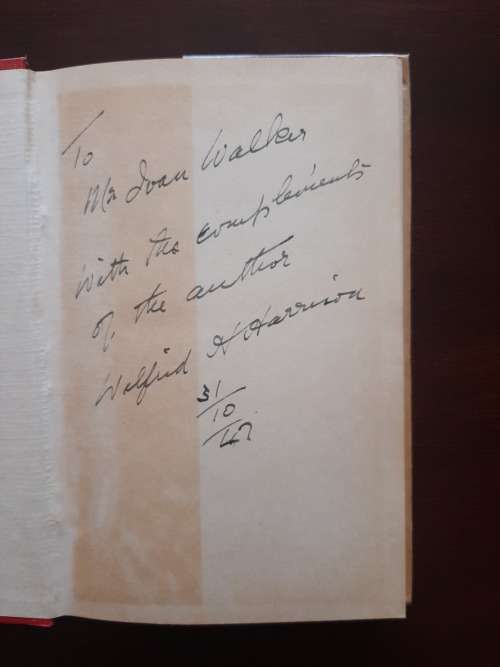 To
Mr Ivan Walker
with the complements
of the author
Wilfrid H Harrison
31/10/47